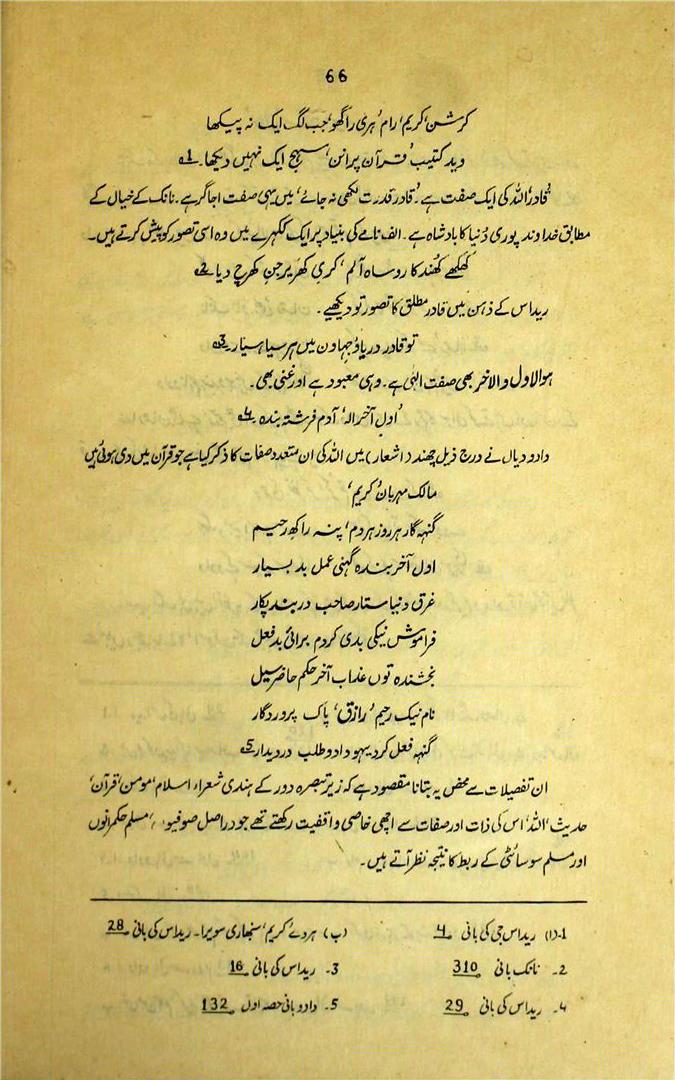 66
کرشن، کریم، رام، ہری راگھو، جب لگ ایک نہ پیکھا
وید کتیب، قرآن پرانن، سہج ایک نہیں دیکھا۔ 1
'قادر' اللہ کی ایک صفت ہے۔ 'قادر قدرت لکھی نہ جائے' میں یہی صفت اجاگر ہے۔ نانک کے خیال کے
مطابق خداوند پوری دُنیا کا بادشاہ ہے۔ الف نامے کی بنیاد پر ایک ککہرے میں وہ اسی تصور کو پیش کرتے ہیں۔
کھکھے کھُندکار دساہ آلم، کری کھریرجن کھرچ دیا 2
ریداس کے ذہن میں قادر مطلق کا تصور تو دیکھیے۔
تو قادر دریاؤ جہاون میں ہرسیا ہسیار 3
ہوالاول والاٰخر بھی صفت الٰہی ہے۔ وہی معبود ہے اور غنی بھی۔
'اول آخر الہ' آدم فرشتہ بندہ ۔ 4
دادو دیال نے درج ذیل چھند (اشعار) میں اللہ کی ان متعدد صفات کا ذکر کیا ہے جو قرآن میں دی ہوئی ہیں
مالک مہربان 'کریم'
گنہہ گار ہر روز ہر دم، پنہ راکھ رحیم
اول آخر بندہ گنہی عمل بد بسیار
غرق دنیا ستار صاحب دربند پکار
فراموش نیکی بدی کردم برائی بد فعل
بخشندہ توں عذاب آخر حکم حاضر سیل
نام نیک رحیم 'رازق' پاک پروردگار
گنہہ فعل کردیہو دادو طلب در دیدار 5
ان تفصیلات سے محض یہ بتانا مقصود ہے کہ زیر تبصرہ دور کے ہندی شعراء اسلام، مومن، قرآن،
حدیث، اللہ، اس کی ذات اور صفات سے اچھی خاصی واقفیت رکھتے تھے جو دراصل صوفیو ، مسلم حکمرانوں
اور مسلم سوسائٹی کے ربط کا نتیجہ نظر آتے ہیں۔
1۔ (ا) ریداس جی کی بانی 4 (ب) ہردے 'کریم' سنبھاری سویرا۔ ریداس کی بانی 28
2۔ نانک بانی 310 3۔ ریداس کی بانی 16
4۔ ریداس کی بانی 29 5۔ دادو بانی حصہ اول 132